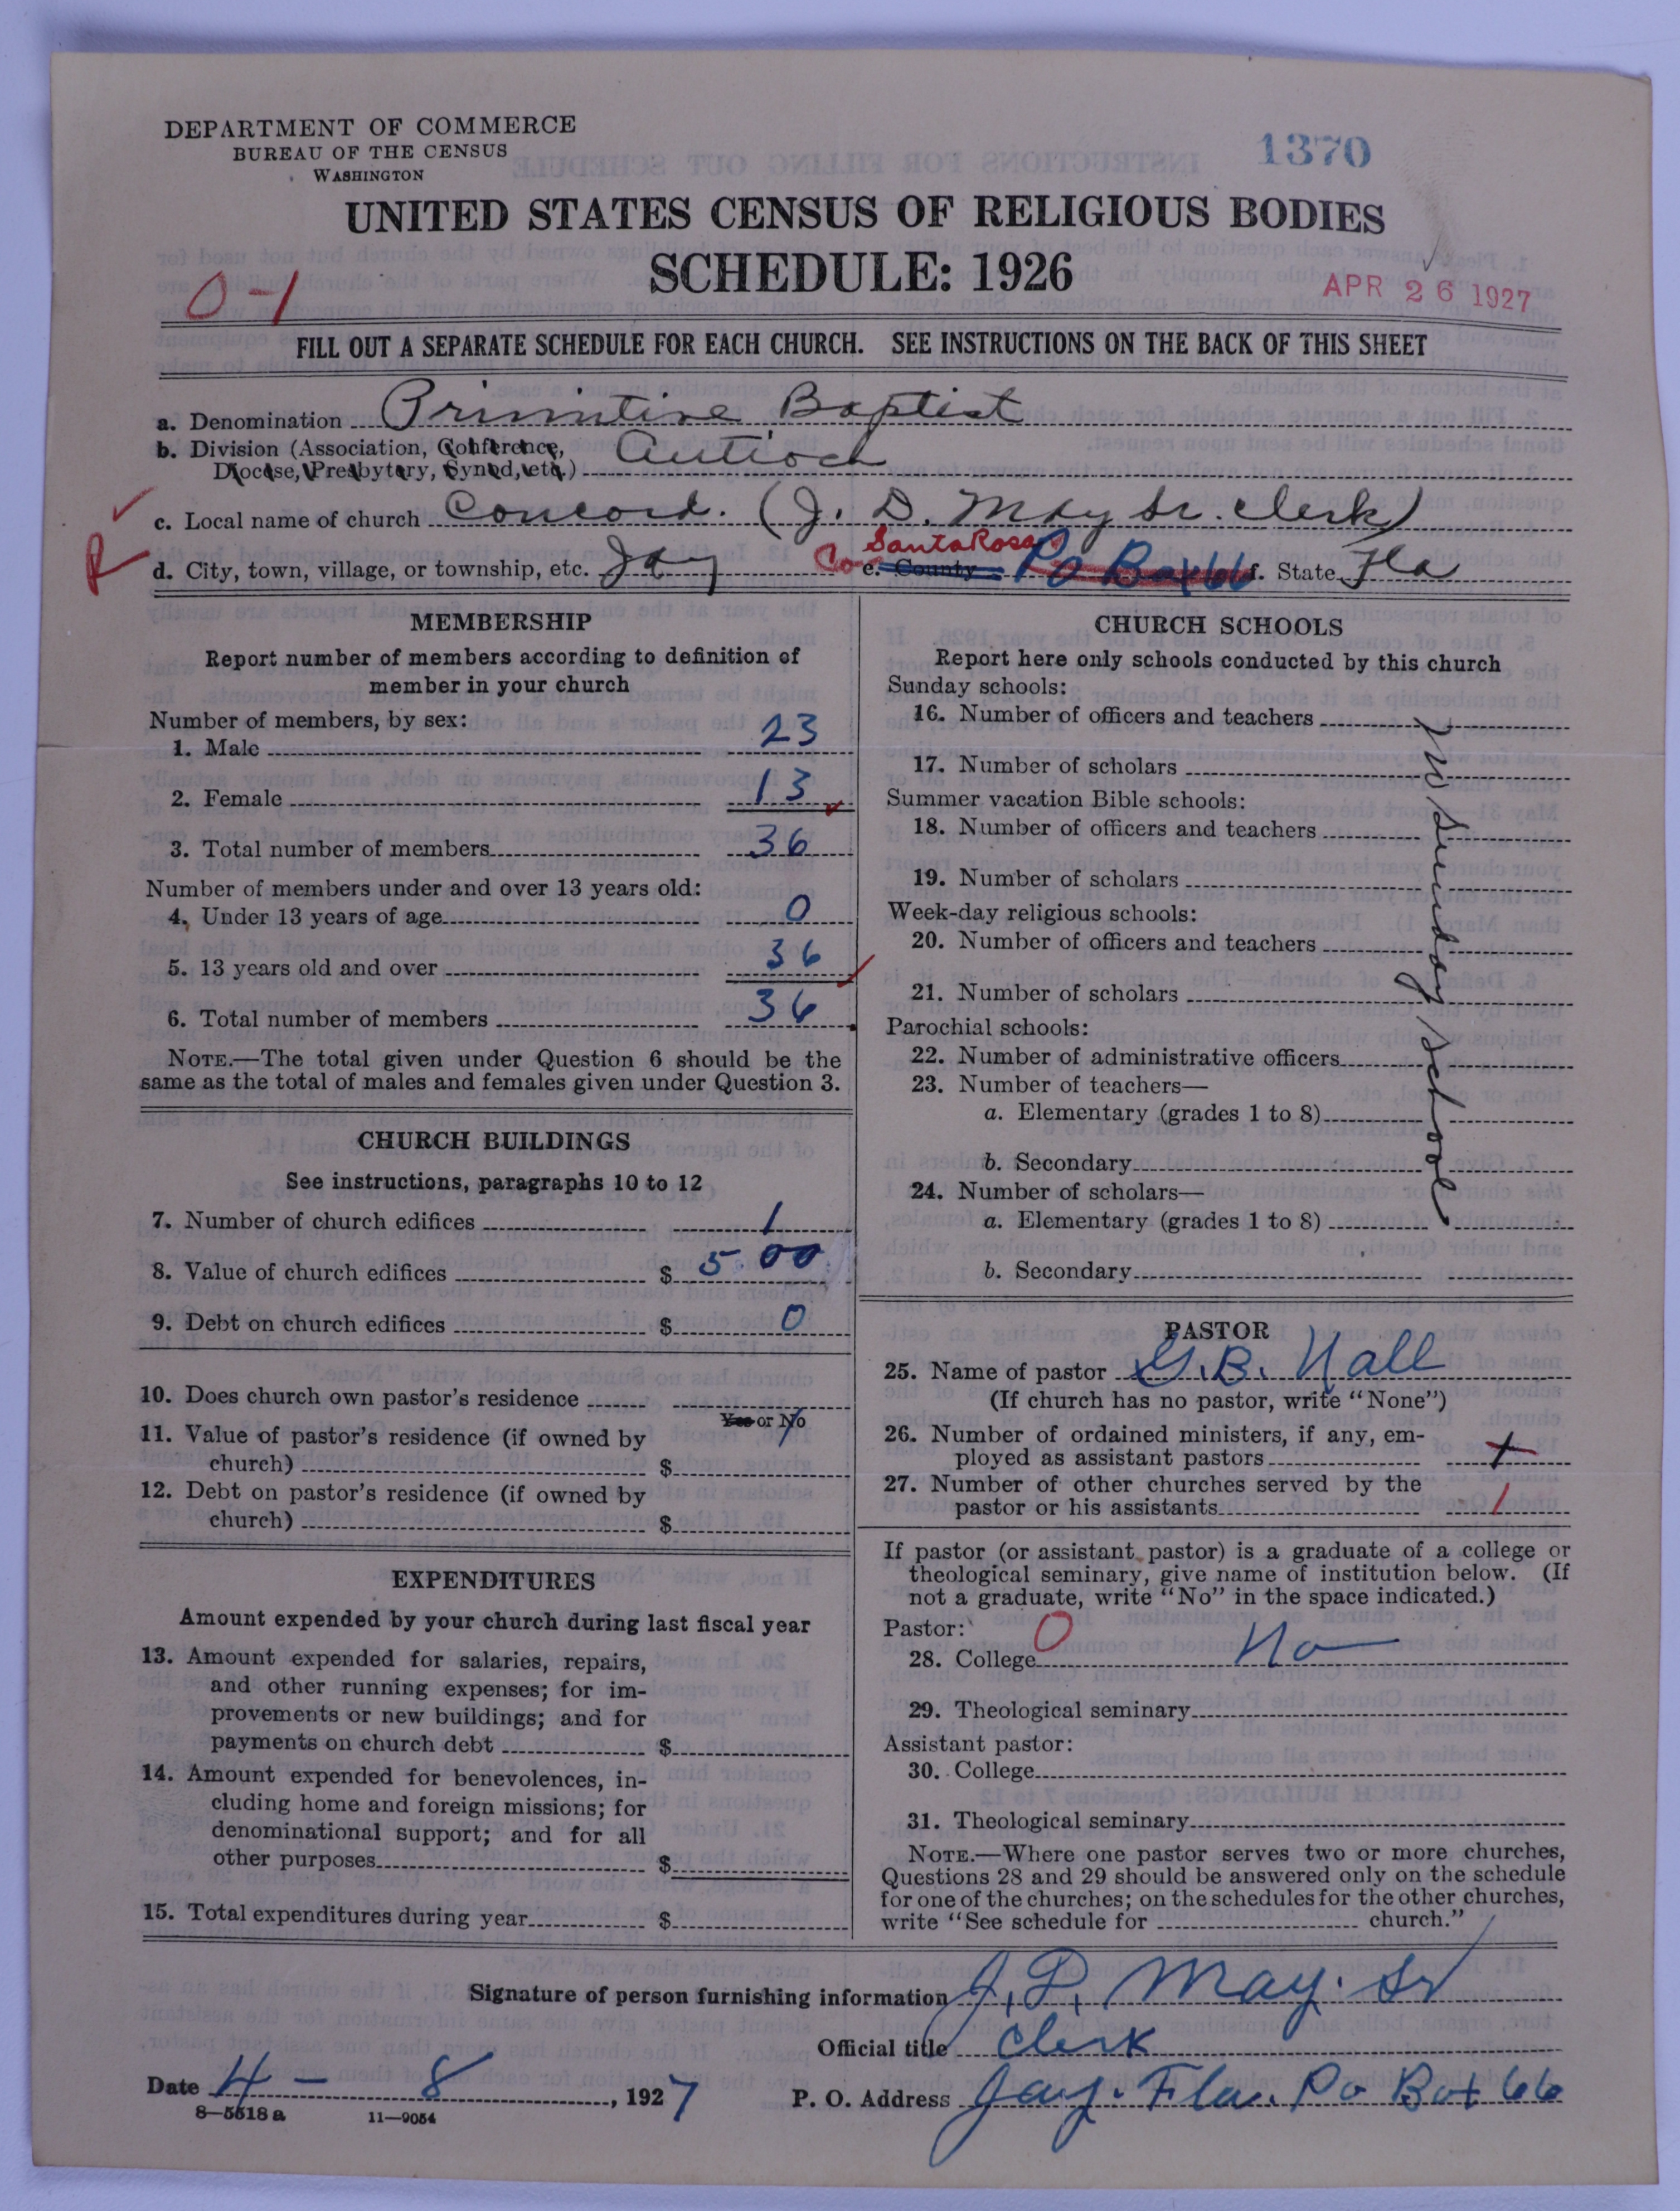 DEPARTMENT OF COMMERCE
BUREAU OF THE CENSUS
WASHINGTON
1370
UNITED STATES CENSUS OF RELIGIOUS BODIES
SCHEDULE: 1926
0-1
APR 26 1927
FILL OUT A SEPARATE SCHEDULE FOR EACH CHURCH. SEE INSTRUCTIONS ON THE BACK OF THIS SHEET
a. Denomination Primitive Baptist
b. Division (Association, Conference, Diocese, Presbytery, Synod, etc.) Antioch
c. Local name of church Concord. (J. D. May Sr. Clerk)
R d. City, town, village, or township, etc. Jay Co Santa Rosa e. County PO Box 66 f. State Fla
MEMBERSHIP
Report number of members according to definition of
member in your church
Number of members, by sex:
1. Male 23
2. Female 13
3. Total number of members 36
Number of members under and over 13 years old:
4. Under 13 years of age 0
5. 13 years old and over 36
6. Total number of members 36
NOTE.—The total given under Question 6 should be the
same as the total of males and females given under Question 3.
CHURCH BUILDINGS
See instructions, paragraphs 10 to 12
7. Number of church edifices 1
8. Value of church edifices $ 5 00
9. Debt on church edifices $ 0
10. Does church own pastor's residence
Yes or No
11. Value of pastor's residence (if owned by
church) $
12. Debt on pastor's residence (if owned by
church) $
EXPENDITURES
Amount expended by your church during last fiscal year
13. Amount expended for salaries, repairs,
and other running expenses; for im-
provements or new buildings; and for
payments on church debt $
14. Amount expended for benevolences, in-
cluding home and foreign missions; for
denominational support; and for all
other purposes $
15. Total expenditures during year $
CHURCH SCHOOLS
Report here only schools conducted by this church
Sunday schools:
16. Number of officers and teachers
17. Number of scholars
Summer vacation Bible schools:
18. Number of officers and teachers
19. Number of scholars
Week-day religious schools:
20. Number of officers and teachers
21. Number of scholars
Parochial schools:
22. Number of administrative officers
23. Number of teachers—
a. Elementary (grades 1 to 8)
b. Secondary
24. Number of scholars—
a. Elementary (grades 1 to 8)
b. Secondary
no Sunday School
PASTOR
25. Name of pastor G. B. Hall
(If church has no pastor, write "None")
26. Number of ordained ministers, if any, em-
ployed as assistant pastors
27. Number of other churches served by the
pastor or his assistants 1
If pastor (or assistant pastor) is a graduate of a college or
theological seminary, give name of institution below. (If
not a graduate, write "No" in the space indicated.)
Pastor: 0
28. College No
29. Theological seminary
Assistant pastor:
30. College
31. Theological seminary
NOTE.—Where one pastor serves two or more churches,
Questions 28 and 29 should be answered only on the schedule
for one of the churches; on the schedules for the other churches,
write "See schedule for church."
Signature of person furnishing information J. D. May. Sr
Official title Clerk
Date 4 - 8, 1927 P. O. Address Jay. Fla. Po Box 66
8-5518 a 11-9054